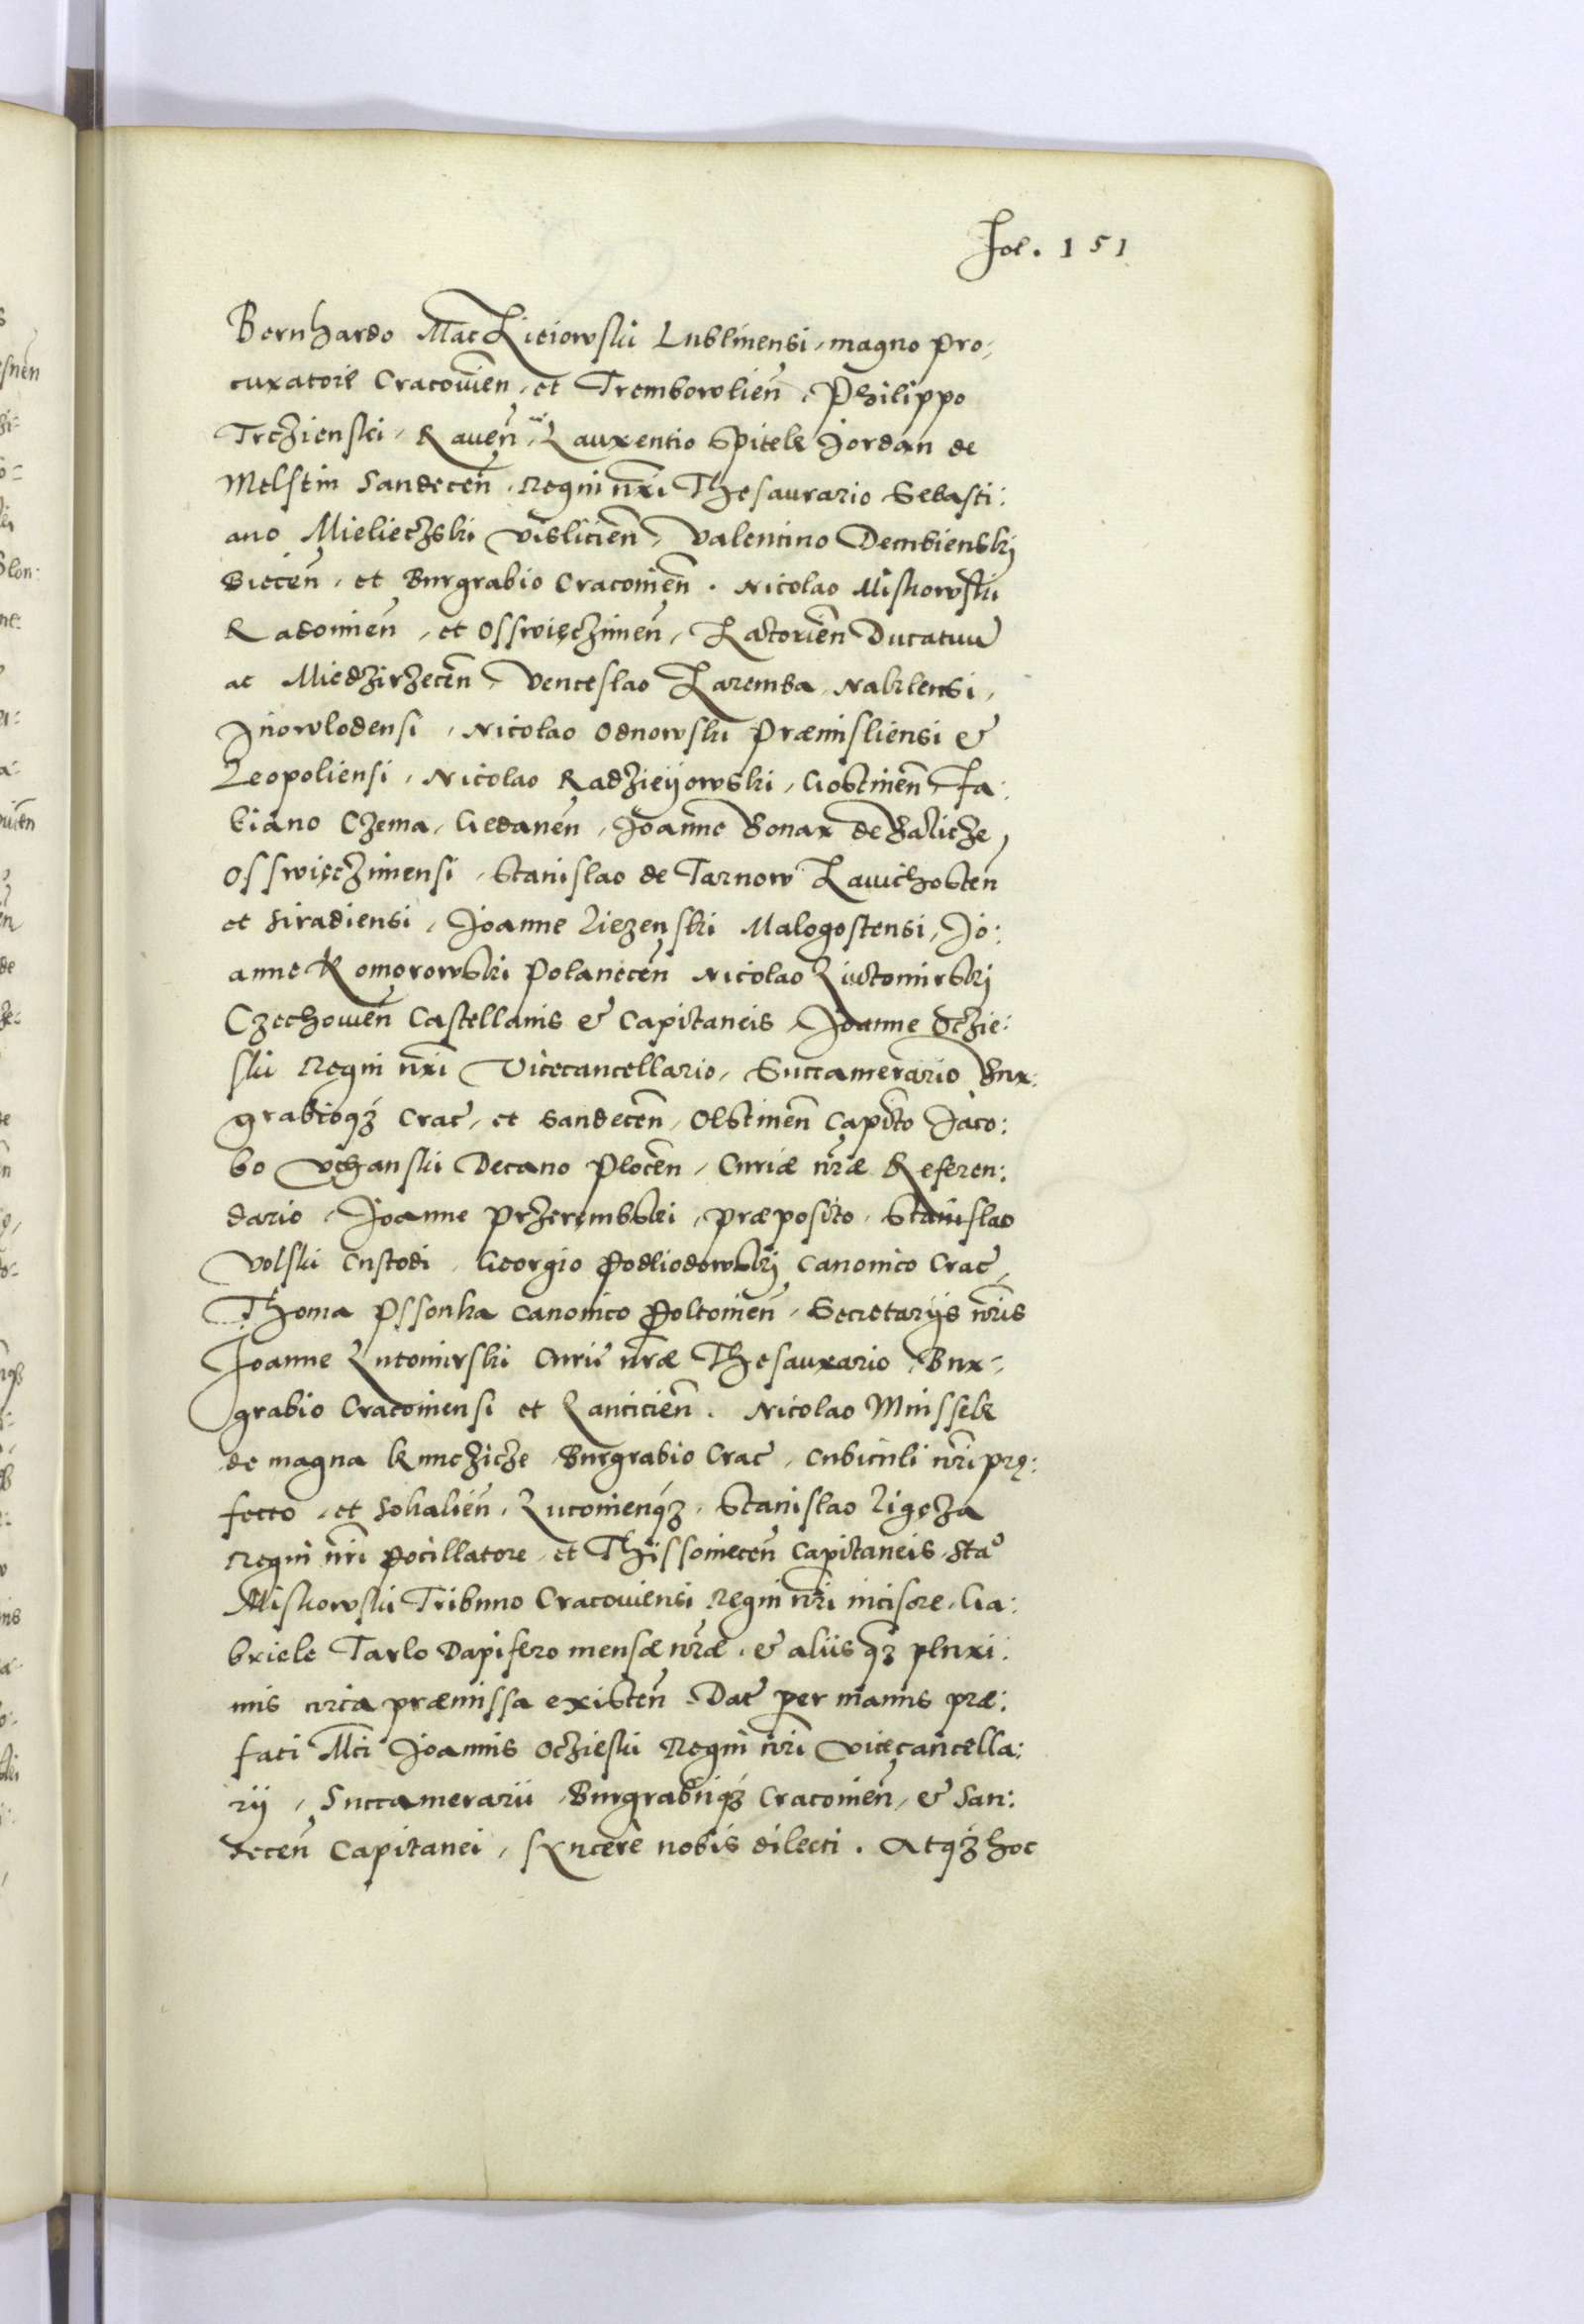 Fol. 151
Bernhardo Maczieiowski Lublinensi, magno pro:
curatore Cracovien̄, et Trembowlien̄, Philippo
Trczienski, Raven̄, Laurentio Spitek Jordan de
Melstin Sandecen̄, Regni nr̄i Thesaurario Sebasti:
ano Mielieczski Vislicien̄, Valentino Dembienskj
Biecen̄, et Burgrabio Cracovien̄. Nicolao Miskowski
Radomien̄, et Osswięczimen̄, Zatorien̄ Ducatuū
ac Miedzirzecen̄, Venceslao Zaremba, Naklensi,
Jnowlodensi, Nicolao Odnowski Præmisliensi &
Leopoliensi, Nicolao Radzieyowski, Gostinen̄ Fa:
biano Czema, Gedanen̄, Joanne Bonar de Balicze,
Osswięczimensi, Stanislao de Tarnow Zavichosten̄
et Siradiensi, Joanne Liezenski Malogostensi, Jo:
anne Komorowski Polanecen̄ Nicolao Lutomirskj
Czechovien̄ Castellanis & Capitaneis, Joanne Oczie:
ski Regni nr̄i Vicecancellario, Succamerario Bur:
grabioq₃ Crac̄, et Sandecen̄, Olstinen̄ Capīto Jaco:
bo Vchanski Decano Plocen̄, Curiæ nr̄æ Referen:
dario, Joanne Przerembski, præposito, Stanislao
Volski Custodi, Georgio Podliodowskj Canonico Crac̄,
Thoma Pssonka Canonico Poltovien̄, Secretarijs nr̄is
Joanne Lutomirski Curiē nr̄æ Thesaurario, Bur=
grabio Cracoviensi et Lancicien̄. Nicolao Mnissek
de magna Kunczicze Burgrabio Crac̄, Cubiculi nr̄i prę:
fecto, et Sokalien̄, Lucovienq₃, Stanislao Ligęza
Regni nr̄i Pocillatore, et Thissoviecen̄ Capitaneis, Sta°
Miskowski Tribuno Cracoviensi Regni nr̄i incisore, Ga:
briele Tarlo Dapifero mensæ nr̄æ, & aliis q₃ pluri:
mis circa præmissa existen̄, Dat̄ per manus præ:
fati Mc̄i Joannis Oczieski Regni nr̄i Vicecancella:
rij, Succamerarii, Burgrabiiq₃ Cracovien̄, & San:
decen̄ Capitanei, syncerè nobis dilecti. Atq₃ hoc